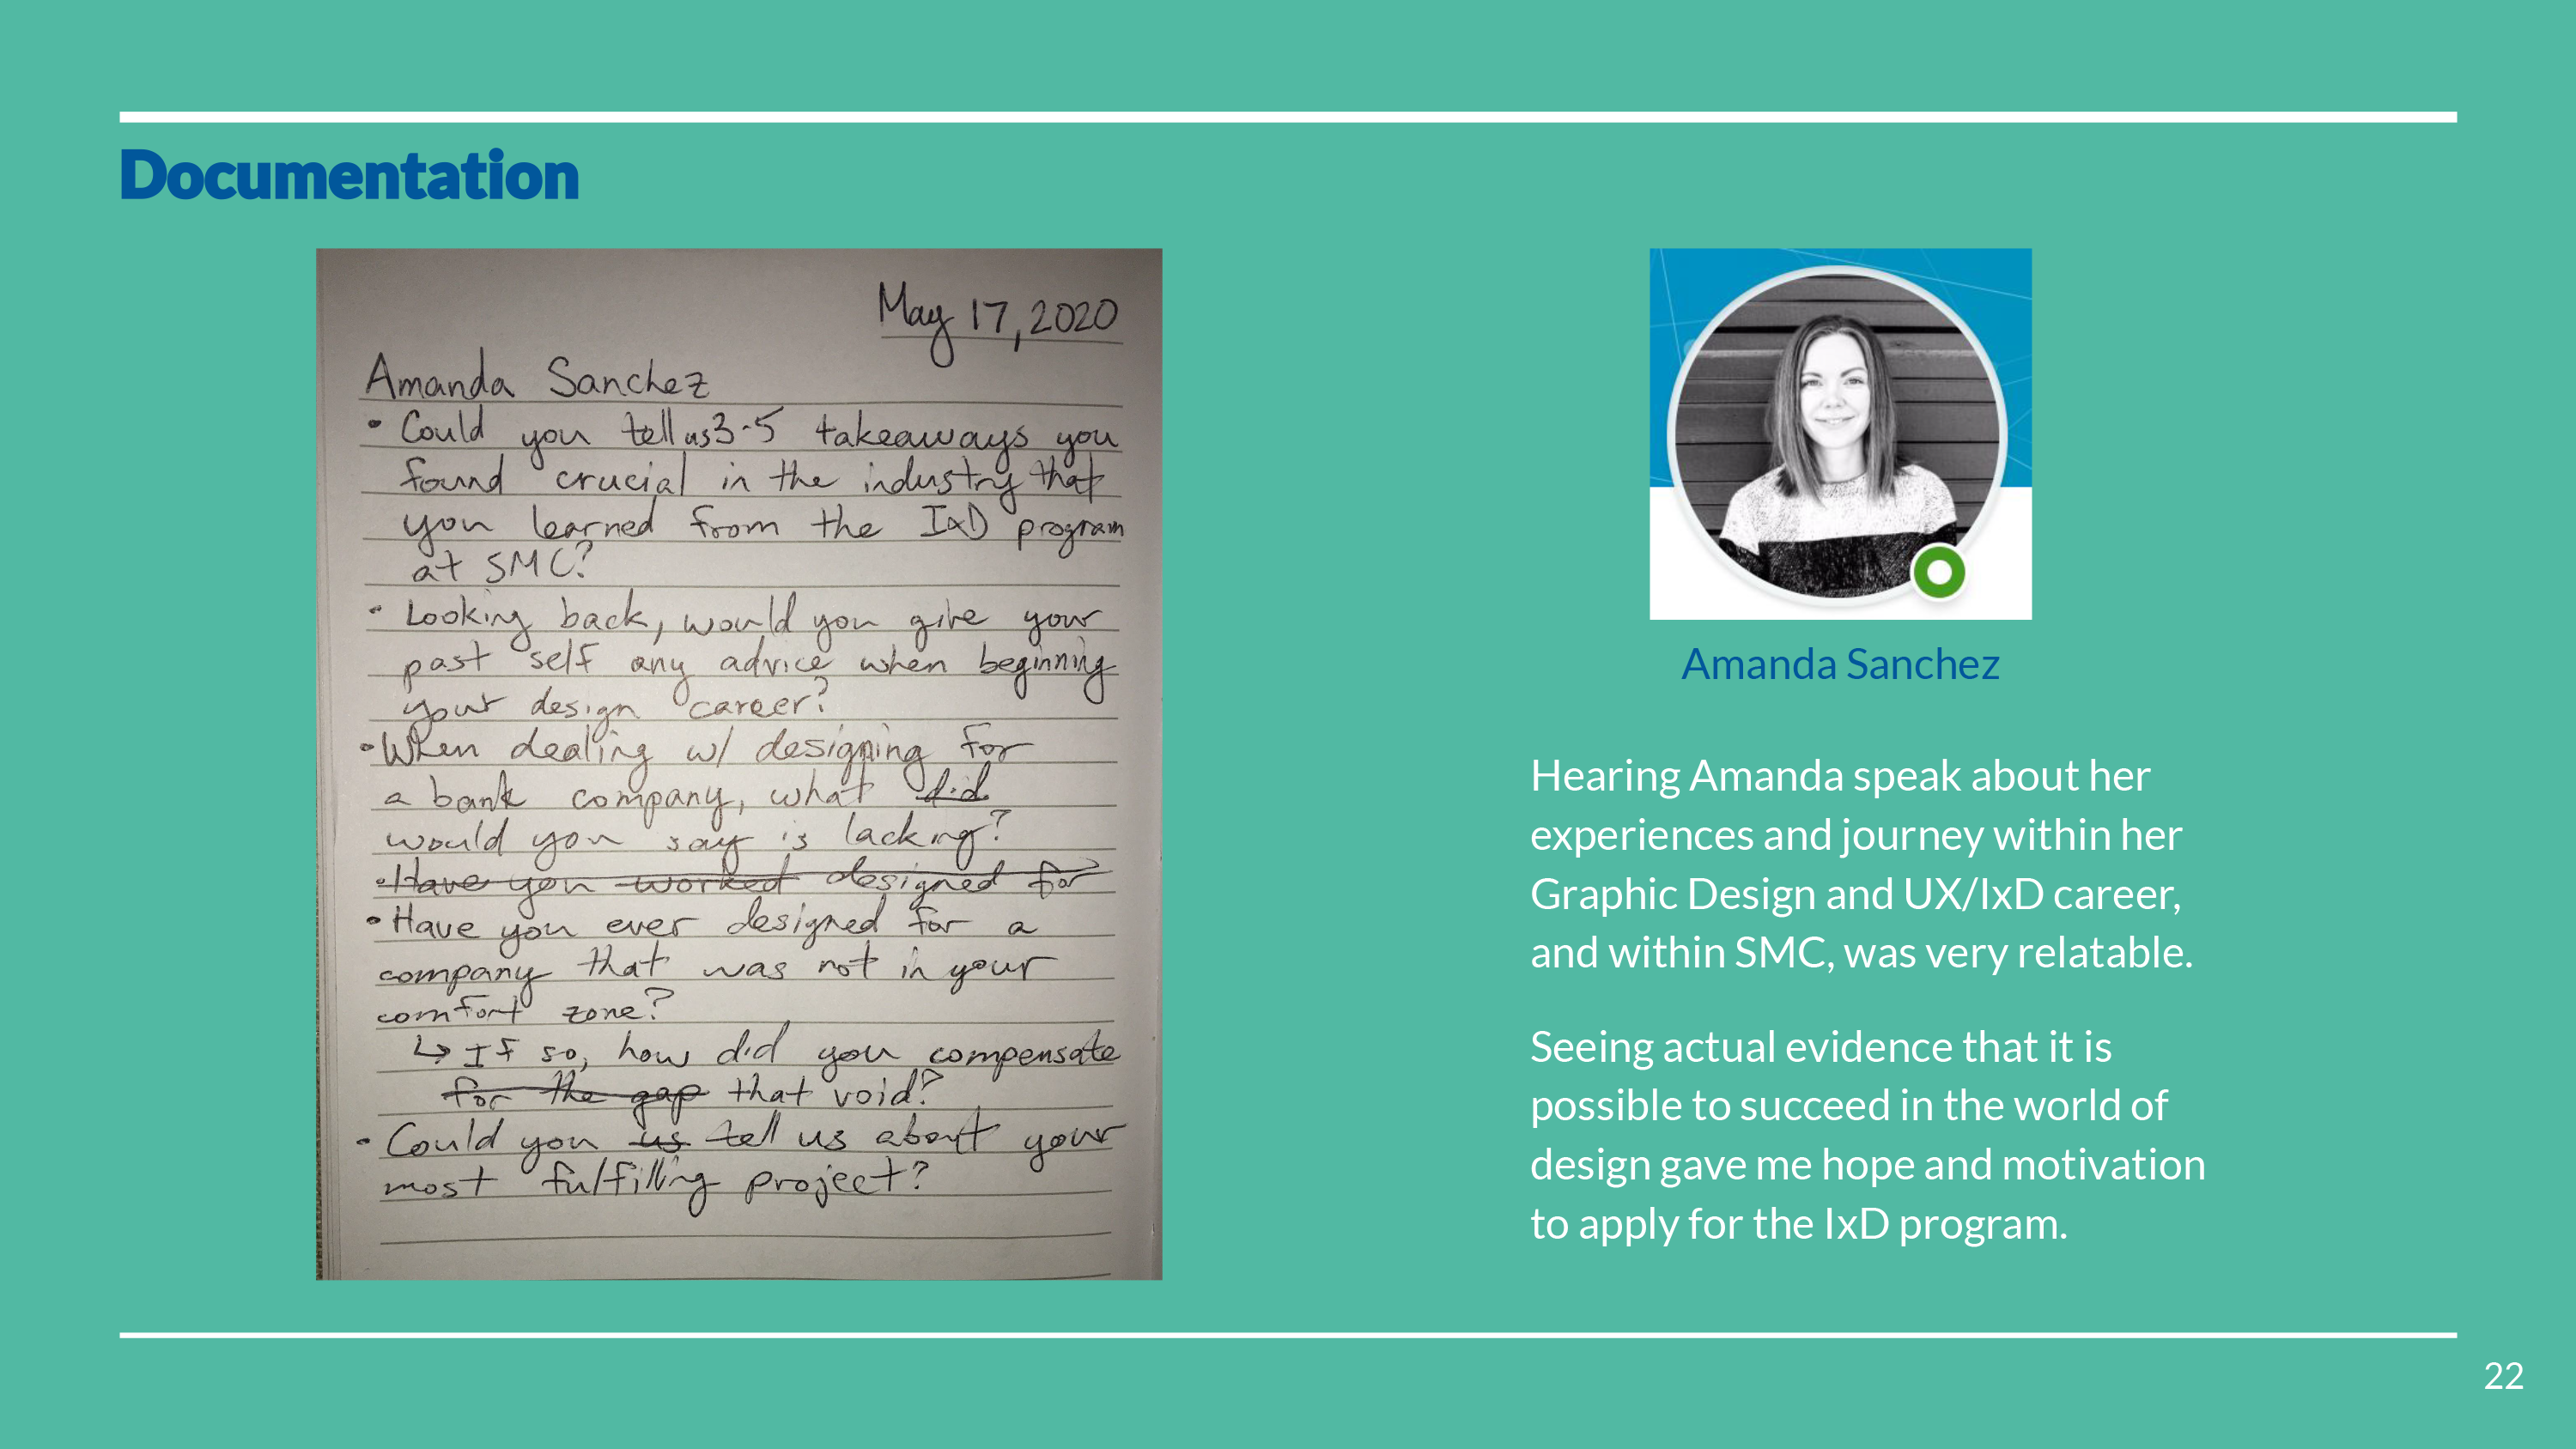 Documentation
May 17, 2020
Amanda Sanchez
• Could you tell us 3-5 takeaways you
found crucial in the industry that
you learned from the IxD program
at SMC?
• Looking back, would you give your
past self any advice when beginning
your design career?
• When dealing w/ designing for
a bank company, what did
would you say is lacking?
• Have you worked designed for
• Have you ever designed for a
company that was not in your
comfort zone?
↳ If so, how did you compensate
for the gap that void?
• Could you us tell us about your
most fulfilling project?
Amanda Sanchez
Hearing Amanda speak about her
experiences and journey within her
Graphic Design and UX/IxD career,
and within SMC, was very relatable.
Seeing actual evidence that it is
possible to succeed in the world of
design gave me hope and motivation
to apply for the IxD program.
22